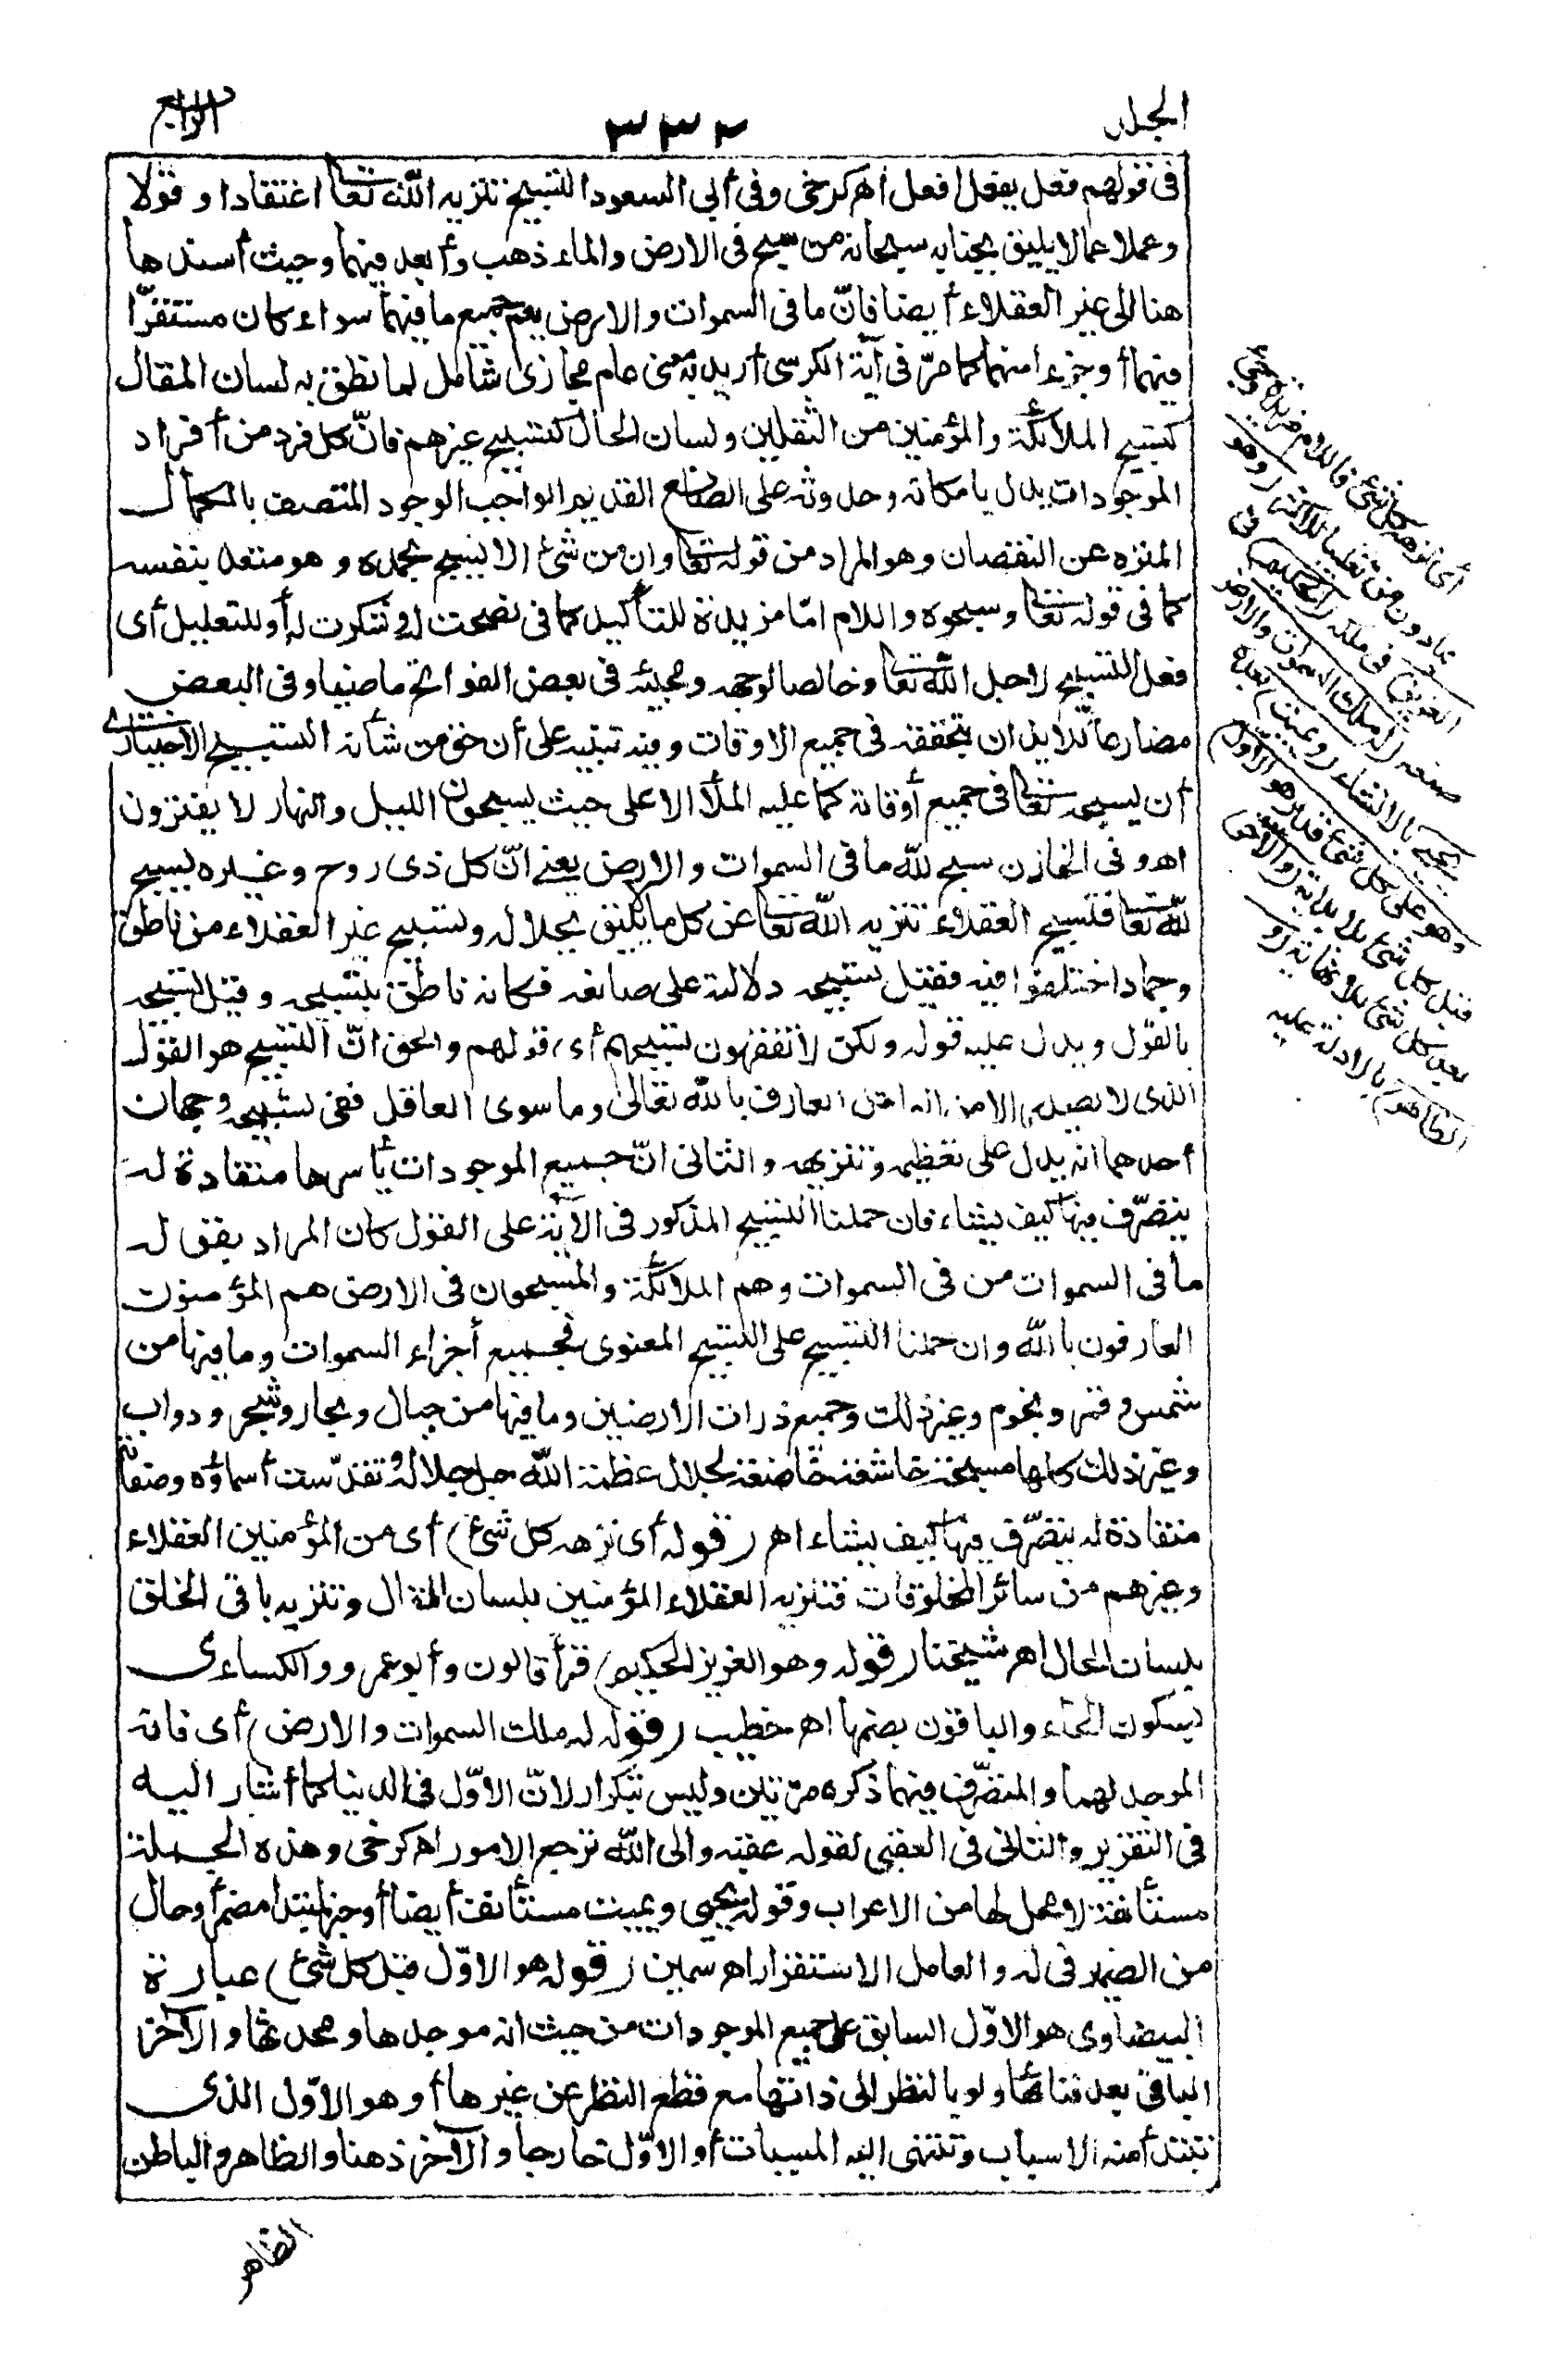 الجلد
٣٣٢
الرابع
فى قولهم فعل يفعل افعل اهـ كرخى وفى أبى السعود التسبيح تنزيه الله تعا اعتقادا وقولا
وعملا عما لا يليق بجنابه سبحانه من سبح فى الارض والماء ذهب وأبعد فيهما وحيث أسند ها
هنا الى غير العقلاء أيضا فانّ ما فى السموات والارض يعم جميع ما فيهما سواء كان مستقرّا
فيهما أو جزءا منهما كما مرّ فى آية الكرسى أريد به معنى عام مجازى شامل لما نطق به لسان المقال
كتسبيح الملائكة والمؤمنين من الثقلين ولسان الحال كتسبيح غيرهم فانّ كل فرد من أفراد
الموجودات يدل بامكانه وحدوثه على الصانع القديم الواجب الوجود المتصف بالكمال
المنزه عن النقصان وهو المراد من قوله تعا وان من شئ الا يسبح بحمده وهو متعد بنفسه
كما فى قوله تعا وسبحوه واللام امّا مزيدة للتأكيد كما فى نصحت له وشكرت له أو للتعليل أى
فعل التسبيح لاجل الله تعا وخالصا لوجهه ومجيئه فى بعض الفواتح ماضيا وفى البعض
مضارعا للايذان بتحققه فى جميع الاوقات وفيه تنبيه على أن حق من شأنه التسبيح الاختيارى
أن يسبحه تعا فى جميع أوقاته كما عليه الملأ الاعلى حيث يسبحون الليل والنهار لا يفترون
اهـ وفى الخازن سبح لله ما فى السموات والارض يعنى انّ كل ذى روح وغيره يسبح
لله تعا فتسبيح العقلاء تنزيه الله تعا عن كل ما لا يليق بجلاله وتسبيح غير العقلاء من ناطق
وجماد اختلفوا فيه فقيل تسبيحه دلالته على صانعه فكانه ناطق بتسبيحه وقيل تسبيحه
بالقول ويدل عليه قوله ولكن لا تفقهون تسبيحهم أى قولهم والحق انّ التسبيح هو القول
الذى لا يصدر الا من العارف بالله تعالى وما سوى العاقل ففى تسبيحه وجهان
أحدهما انه يدل على تعظيمه وتنزيهه والثانى انّ جميع الموجودات بأسرها منقادة له
يتصرّف فيها كيف يشاء فان حملنا التسبيح المذكور فى الآية على القول كان المراد بقوله
ما فى السموات من فى السموات وهم الملائكة والمسبحون فى الارض هم المؤمنون
العارفون بالله وان حملنا التسبيح على التسبيح المعنوى فجميع أجزاء السموات وما فيها من
شمس وقمر ونجوم وغير ذلك وجميع ذرات الارضين وما فيها من جبال وبحار وشجر ودواب
وغير ذلك كلها مسبحة خاشعة خاضعة لجلال عظمة الله جل جلاله وتقدّست أسماؤه وصفاته
منقادة له يتصرّف فيها كيف يشاء اهـ (قوله أى نزهه كل شئ) أى من المؤمنين العقلاء
وغيرهم من سائر المخلوقات فتنزيه العقلاء المؤمنين بلسان المقال وتنزيه باقى الخلق
بلسان الحال اهـ شيخنا (قوله وهو العزيز الحكيم) قرأ قالون وأبو عمرو والكساءى
بسكون الهاء والباقون بضمها اهـ خطيب (قوله له ملك السموات والارض) أى فانه
الموجد لهما والمتصرّف فيهما ذكره مرّتين وليس بتكرار لانّ الاوّل فى الدنيا كما أشار اليه
فى التقرير والثانى فى العقبى لقوله عقبه والى الله ترجع الامور اهـ كرخى وهذه الجملة
مستأنفة لا محل لها من الاعراب وقوله يحيى ويميت مستأنف أيضا أو خبر لمبتدا مضمر أو حال
من الضمير فى له والعامل الاستقرار اهـ سمين (قوله هو الاوّل قبل كل شئ) عبارة
البيضاوى هو الاوّل السابق على جميع الموجودات من حيث انه موجدها ومحدثها والآخر
الباقى بعد فنائها ولو بالنظر الى ذاتها مع قطع النظر عن غيرها أو هو الاوّل الذى
تبتدأ منه الاسباب وتنتهى اليه المسببات أو الاوّل خارجا والآخر ذهنا والظاهر والباطن
الظاهر
أى نزهه كل شئ فاللام مزيدة وجئ
بما دون من تغليبا للاكثر (وهو
العزيز) فى ملكه (الحكيم) فى
صنعه (له ملك السموات والارض
يحيى) بالانشاء (ويميت) بعده
(وهو على كل شئ قدير هو الاول)
قبل كل شئ بلا بداية (والآخر)
بعد كل شئ بلا نهاية (و
الظاهر) بالادلة عليه